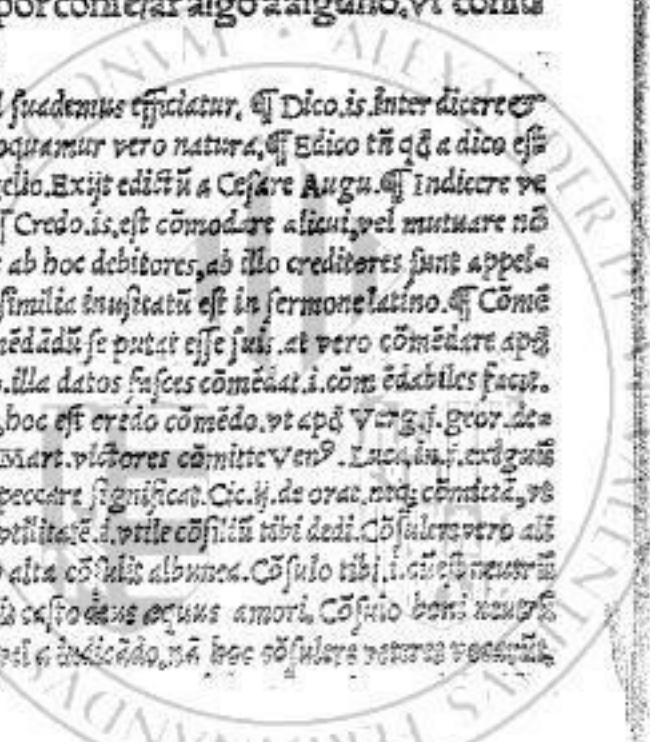 por cometer algo a alguno, vt comit
l ſuademus efficiatur. ¶ Dico.is.inter dicere &
oquamur vero natura, ¶ Edico tñ qđ a dico eſt
Exijt edictū a Ceſare Augu. ¶ Indicere ve
¶ Credo.is.eſt cōmodare alicui, vel mutuare nō
ab hoc debitores, ab illo creditores ſunt appel=
ſimilia inuſitatū eſt in ſermone latino. ¶ Cōmē
mēdādū ſe putat eſſe ſuis. at vero cōmēdare apđ
illa datos faſces cōmēdat.i.cōmēdabiles facit.
hoc eſt credo cōmēdo. vt apđ Verg.j.geor.
Mart. victores cōmitte Ven⁹. Luca.in.j.exiguū
peccare ſignificat. Cic.ij.de orat. neq; cōmittā, vt
vtilitatē.i.vtile cōſiliū tibi dedi. Cōſulere vero ali
alta cōſulit albunea. Cōſulo tibi.i.
caſto deus æquus amori. Cōſulo boni
vel a indicādo, nā hoc cōſulere veteres vocarūt.
ALEXANDER
VALENTINUS